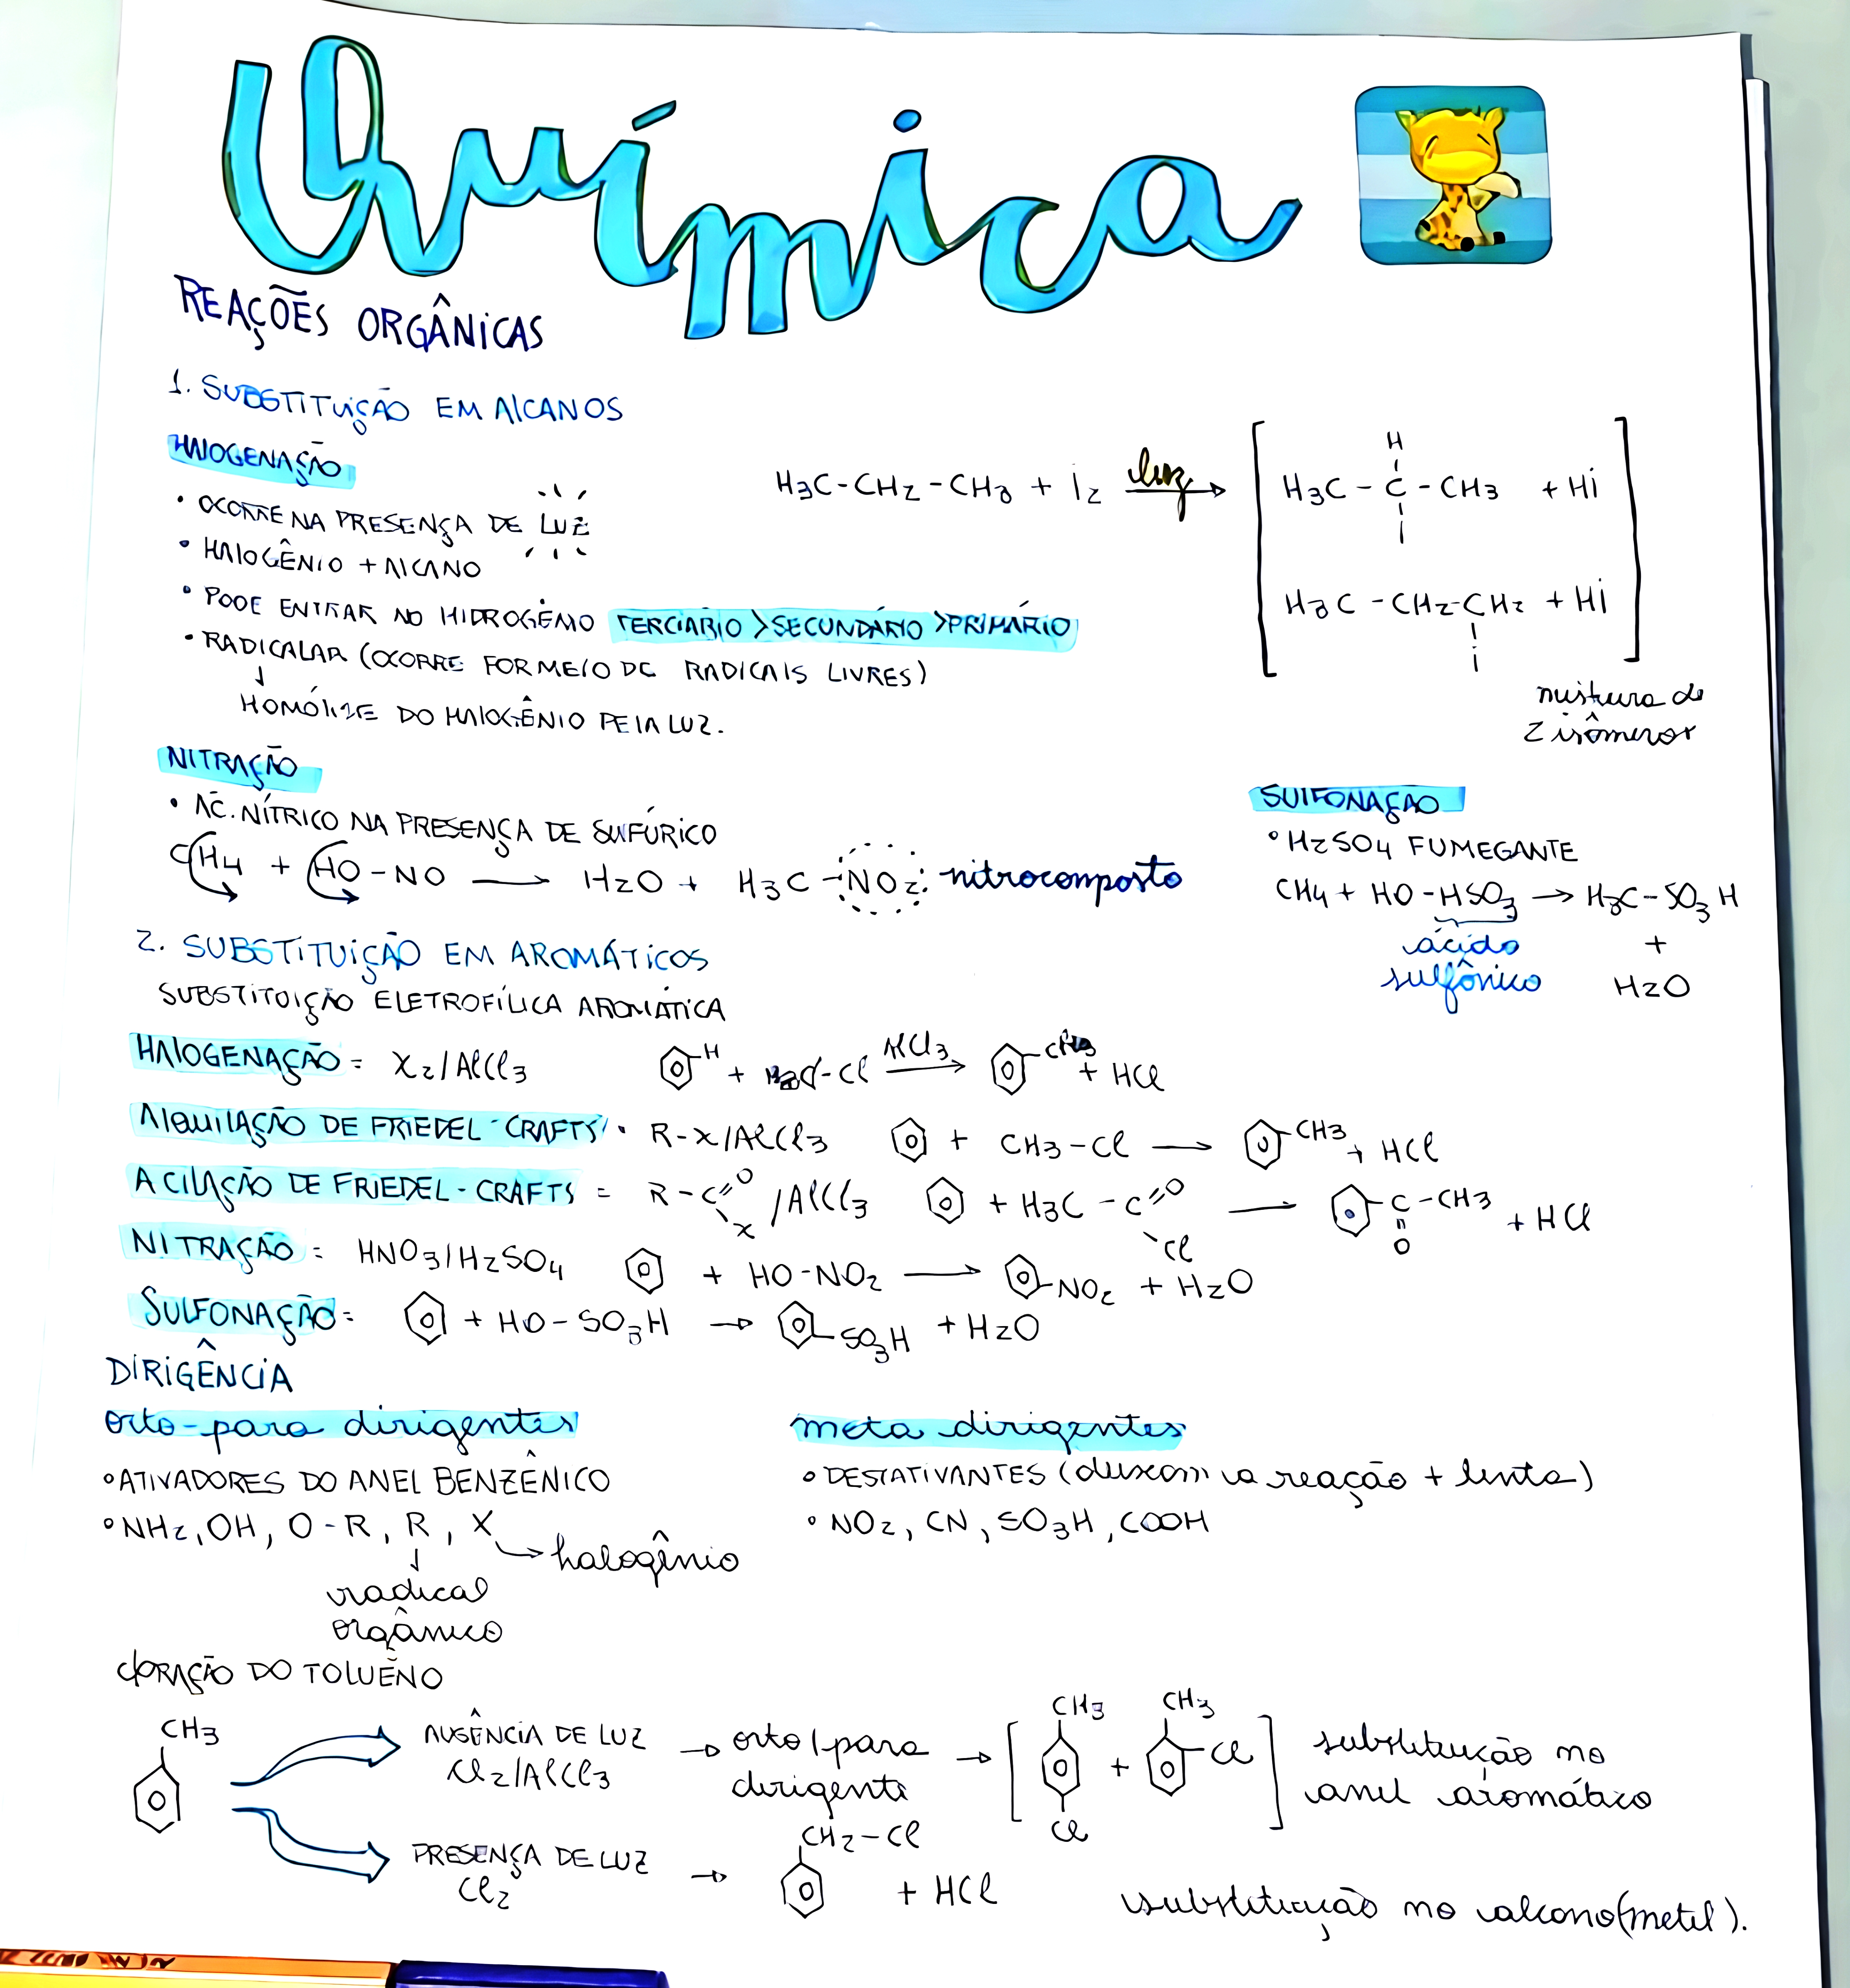 Química
REAÇÕES ORGÂNICAS
1. SUBSTITUIÇÃO EM ALCANOS
HALOGENAÇÃO
• OCORRE NA PRESENÇA DE LUZ
• HALOGÊNIO + ALCANO
• PODE ENTRAR NO HIDROGÊNIO TERCIÁRIO > SECUNDÁRIO > PRIMÁRIO
• RADICALAR (OCORRE POR MEIO DE RADICAIS LIVRES)
↓
HOMÓLISE DO HALOGÊNIO PELA LUZ.
H3C-CH2-CH3 + I2 luz →
H
H3C - C - CH3 + HI
I
H3C - CH2 - CH2 + HI
I
mistura de
2 isômeros
NITRAÇÃO
• ÁC. NÍTRICO NA PRESENÇA DE SULFÚRICO
CH4 + HO-NO → H2O + H3C - NO2: nitrocomposto
SULFONAÇÃO
• H2SO4 FUMEGANTE
CH4 + HO-HSO3 → H3C-SO3H
ácido +
sulfônico H2O
2. SUBSTITUIÇÃO EM AROMÁTICOS
SUBSTITUIÇÃO ELETROFÍLICA AROMÁTICA
HALOGENAÇÃO = X2/AlCl3 H + -Cl AlCl3 → + HCl
ALQUILAÇÃO DE FRIEDEL-CRAFTS • R-X/AlCl3 + CH3-Cl → CH3 + HCl
ACILAÇÃO DE FRIEDEL-CRAFTS = R-C=O X /AlCl3 + H3C-C=O Cl → C-CH3 O + HCl
NITRAÇÃO = HNO3/H2SO4 + HO-NO2 → NO2 + H2O
SULFONAÇÃO = + HO-SO3H → SO3H + H2O
DIRIGÊNCIA
orto-para dirigentes
• ATIVADORES DO ANEL BENZÊNICO
• NH2, OH, O-R, R, X → halogênio
↓
radical
orgânico
meta dirigentes
• DESATIVANTES (deixam a reação + lenta)
• NO2, CN, SO3H, COOH
CLORAÇÃO DO TOLUENO
CH3
AUSÊNCIA DE LUZ → orto/para → [CH3 + CH3 Cl] substituição no
Cl2/AlCl3 dirigente Cl anel aromático
PRESENÇA DE LUZ → CH2-Cl + HCl
Cl2
substituição no alcano (metil).